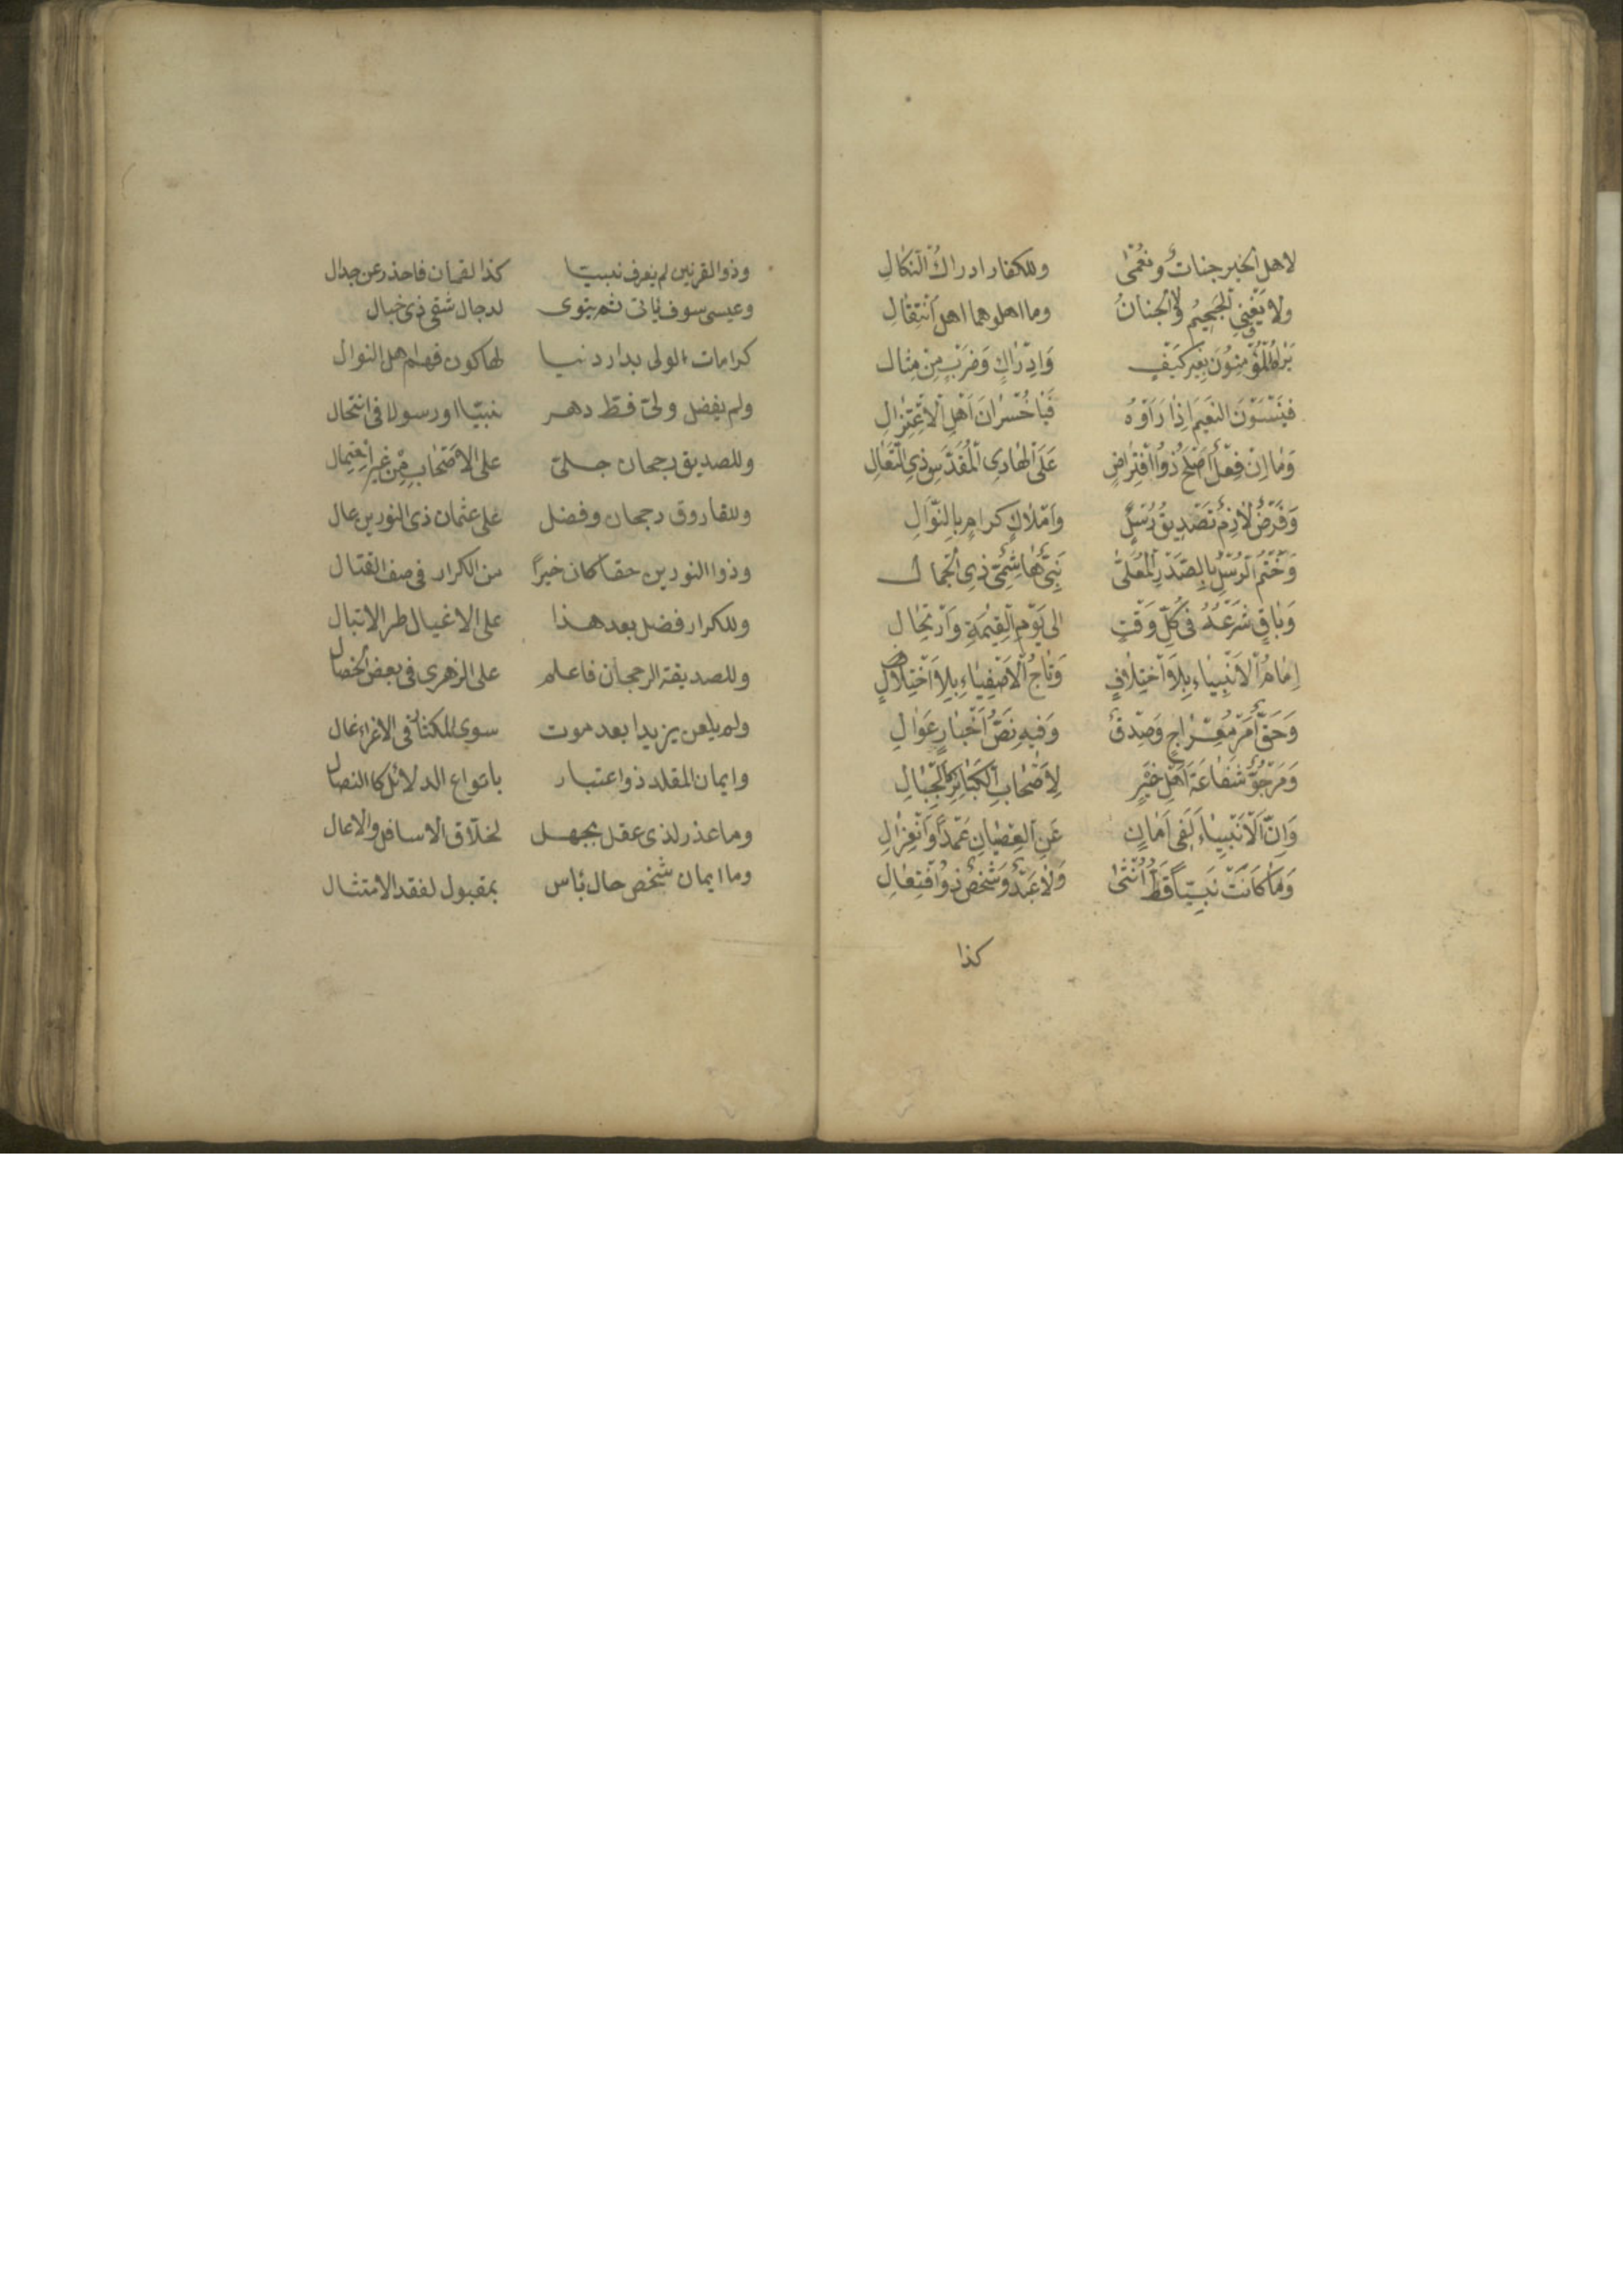 لاهل الخير جنات ونعمى وللكفار ادراك النكال
ولا يفنى الجحيم ولا الجنان وما اهلوهما اهل انتقال
يراه المؤمنون بغير كيف وادراك وضرب من مثال
فينسون النعيم اذا راوه فيا خسران اهل الاعتزال
وما ان فعل اصلح ذو افتراض على الهادى المقدس ذى التعالى
وفرض لازم تصديق رسل واملاك كرام بالنوال
وختم الرسل بالصدر المعلى نبى هاشمى ذى الجمال
وباق شرعه فى كل وقت الى يوم القيمة وارتحال
امام الانبياء بلا اختلاف وتاج الاصفياء بلا اختلال
وحق امر معراج وصدق وفيه نص اخبار عوال
ومرجو شفاعة اهل خير لاصحاب الكبائر كالجبال
وان الانبياء لفى امان عن العصيان عمدا وانعزال
وما كانت نبيا قط انثى ولا عبد وشخص ذو افتعال
كذا
وذو القرنين لم يعرف نبيا كذا لقمان فاحذر عن جدال
وعيسى سوف ياتى ثم يتوى لدجال شقى ذى خبال
كرامات الولى بدار دنيا لها كون فهم اهل النوال
ولم يفضل ولى قط دهر نبيا او رسولا فى انتحال
وللصديق رجحان جلى على الاصحاب من غير احتمال
وللفاروق رجحان وفضل على عثمان ذى النورين عال
وذو النورين حقا كان خيرا من الكرار فى صف القتال
وللكرار فضل بعد هذا على الاغيال طر الاتبال
وللصديقة الرجحان فاعلم على الزهرى فى بعض الخصال
ولم يلعن يزيدا بعد موت سوى المكثار فى الاغراء غال
وايمان المقلد ذو اعتبار بانواع الدلائل كا النصال
وما عذر لذى عقل بجهل لخلاق الاسافل والاعال
وما ايمان شخص حال باس بمقبول لفقد الامتثال